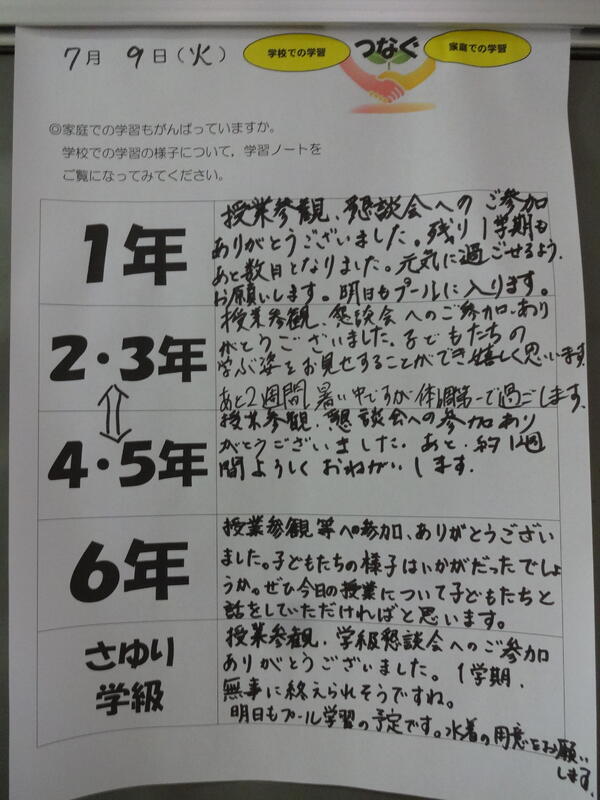 7月 9日(火)
学校での学習
つなぐ
家庭での学習
◎家庭での学習もがんばっていますか。
学校での学習の様子について，学習ノートを
ご覧になってみてください。
1年
授業参観、懇談会へのご参加
ありがとうございました。残り1学期も
あと数日となりました。元気に過ごせるよう、
お願いします。明日もプールに入ります。
2・3年
授業参観、懇談会へのご参加、あり
がとうございました。子どもたちの
学ぶ姿をお見せすることができ嬉しく思います。
あと2週間、暑い中ですが体調第一で過ごします。
4・5年
授業参観、懇談会への参加あり
がとうございました。あと、約1週
間よろしくおねがいします。
6年
授業参観等への参加、ありがとうござい
ました。子どもたちの様子はいかがだったでしょ
うか。ぜひ今日の授業について子どもたちと
話をしていただければと思います。
さゆり
学級
授業参観、学級懇談会へのご参加
ありがとうございました。1学期、
無事に終えられそうですね。
明日もプール学習の予定です。水着の用意をお願い
します。